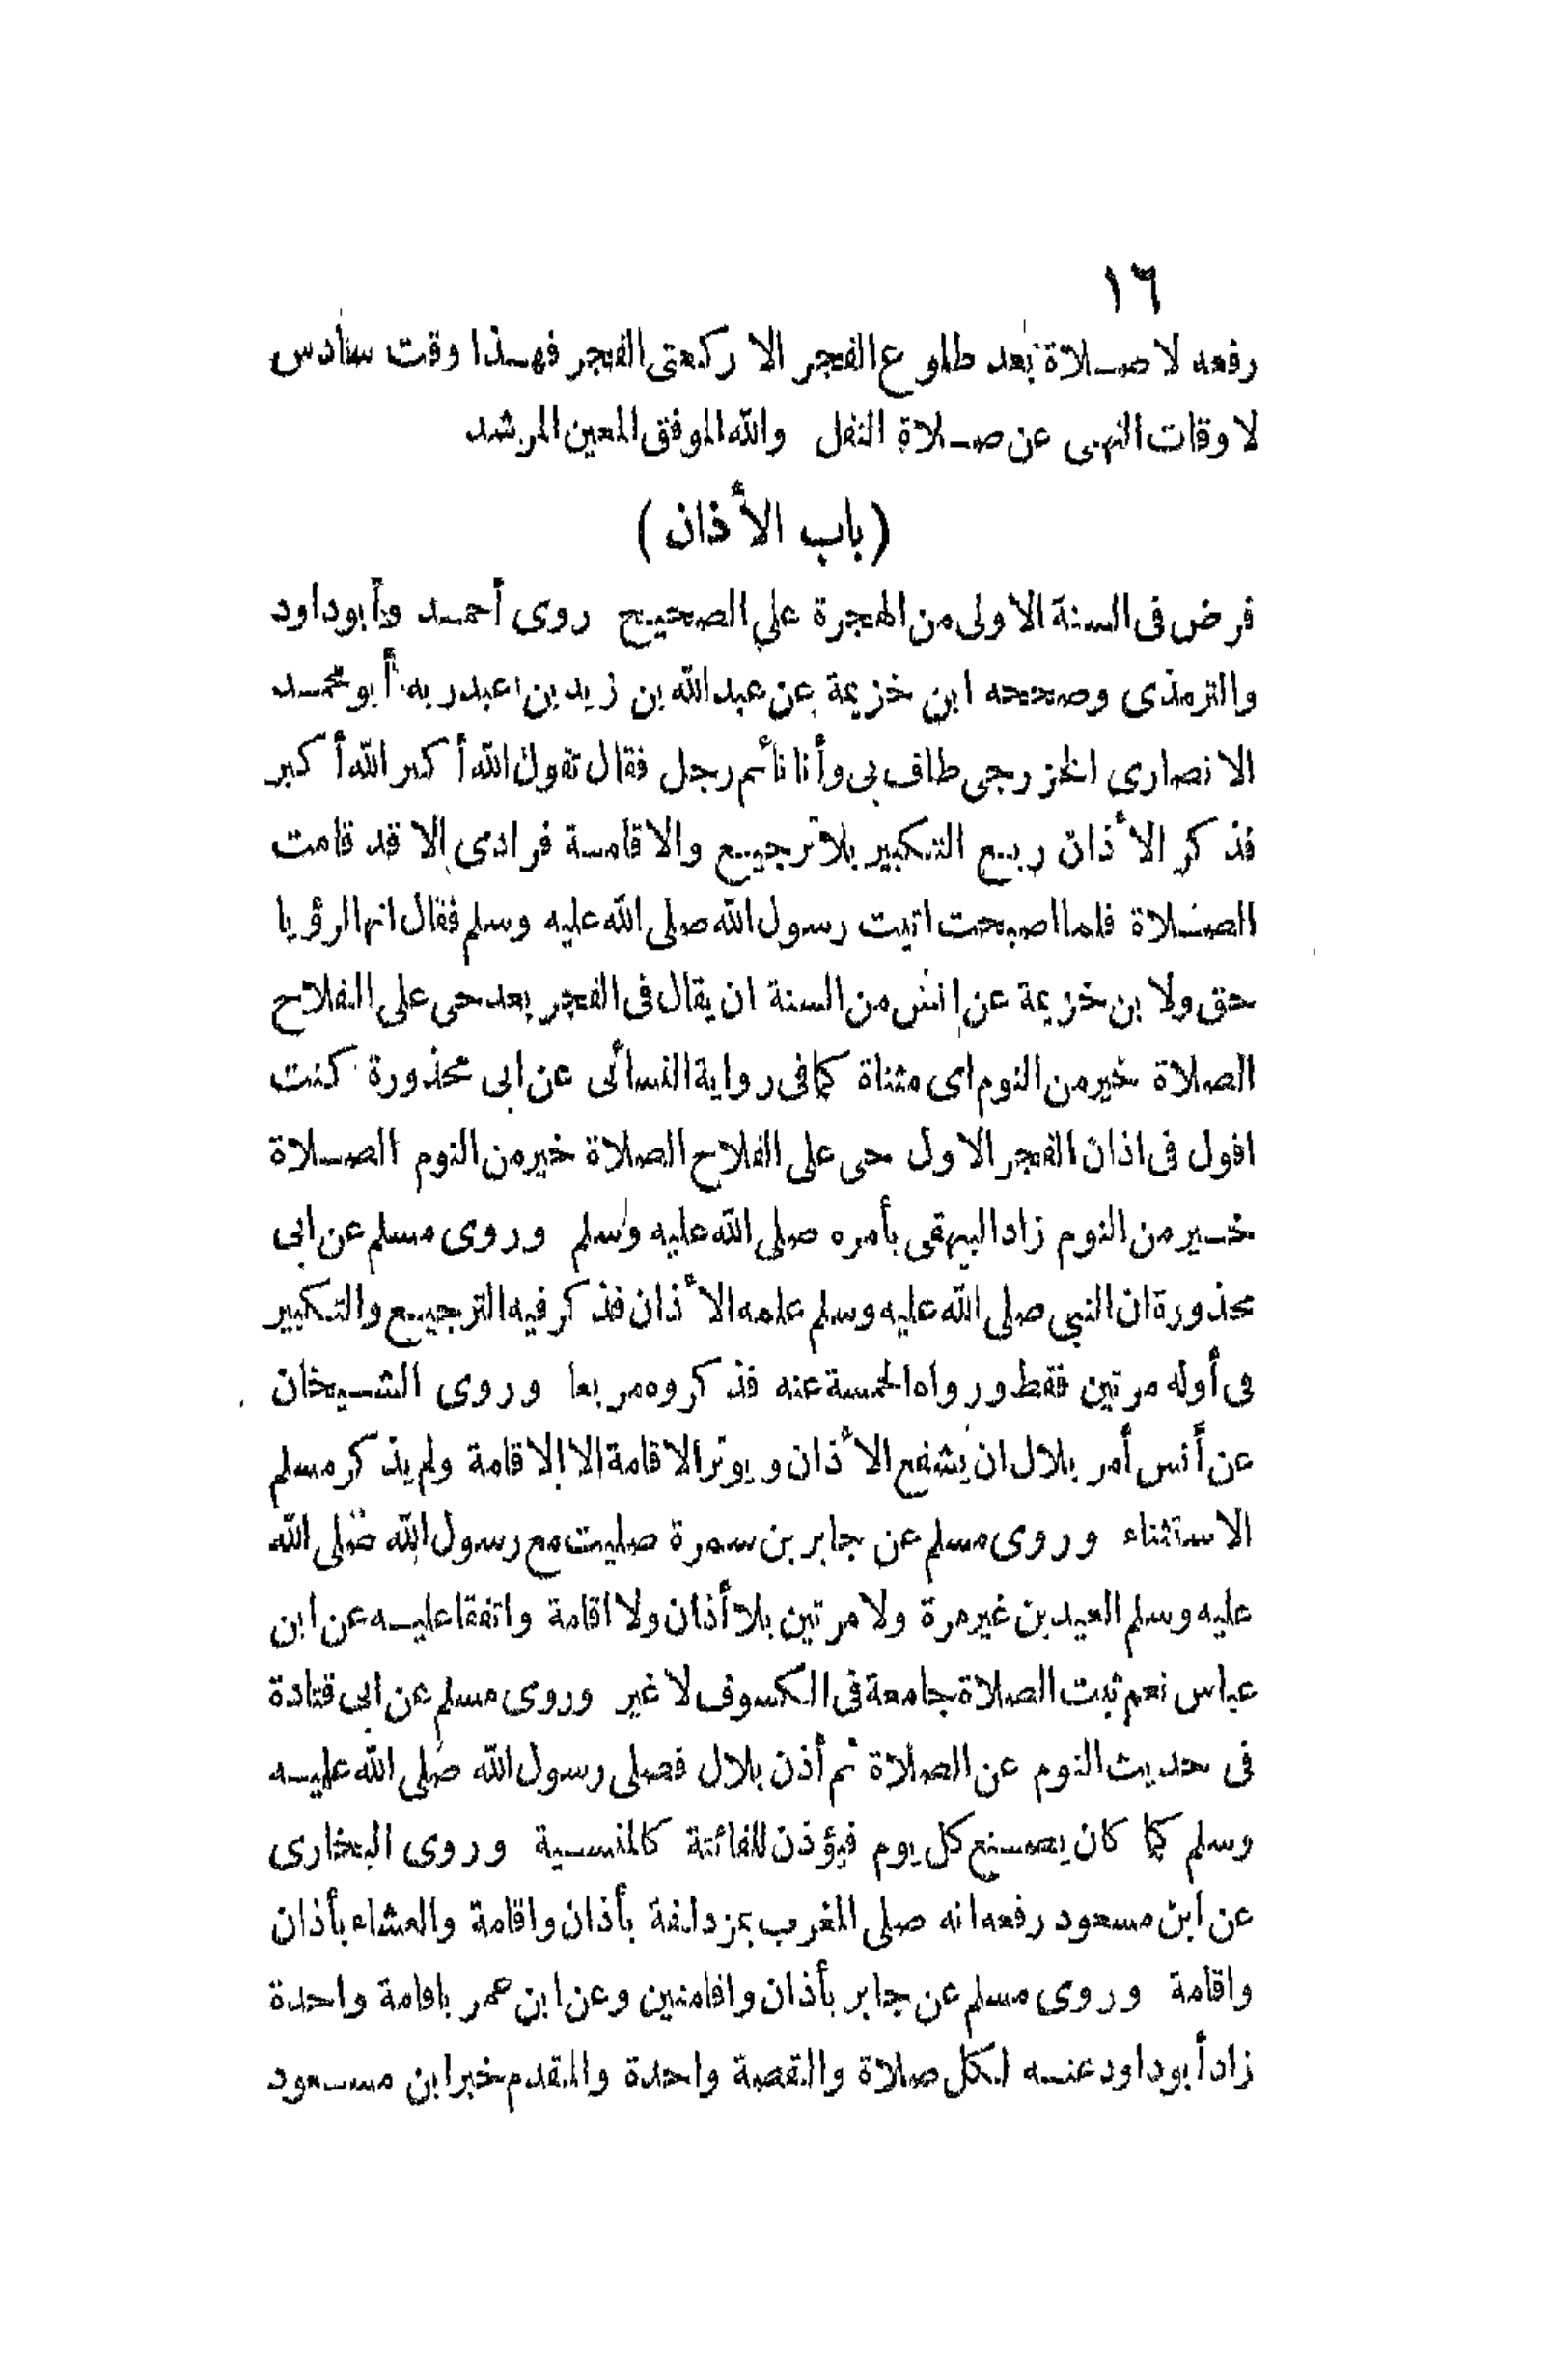 ١٦
رفعه لا صلاة بعد طلوع الفجر الا ركعتى الفجر فهذا وقت سادس
لاوقات النهى عن صلاة النفل والله الموفق المعين المرشد
(باب الأذان)
فرض فى السنة الاولى من الهجرة على الصحيح روى أحمد وأبوداود
والترمذى وصححه ابن خزيمة عن عبدالله بن زيد بن عبدربه أبو محمد
الانصارى الخزرجى طاف بى وأنا نائم رجل فقال تقول الله أكبر الله أكبر
فذكر الأذان ربع التكبير بلا ترجيع والاقامة فرادى الا قد قامت
الصلاة فلما اصبحت اتيت رسول الله صلى الله عليه وسلم فقال انها الرؤيا
حق ولابن خزيمة عن انس من السنة ان يقال فى الفجر بعد حى على الفلاح
الصلاة خير من النوم اى مثناة كما فى رواية النسائى عن ابى محذورة كنت
اقول فى اذان الفجر الاول حى على الفلاح الصلاة خير من النوم الصلاة
خير من النوم زاد البيهقى بأمره صلى الله عليه وسلم وروى مسلم عن ابى
محذورة ان النبى صلى الله عليه وسلم علمه الأذان فذكر فيه الترجيع والتكبير
فى أوله مرتين فقط ورواه الخمسة عنه فذكروه مربعا وروى الشيخان
عن أنس أمر بلال ان يشفع الأذان ويوتر الاقامة الا الاقامة ولم يذكر مسلم
الاستثناء وروى مسلم عن جابر بن سمرة صليت مع رسول الله صلى الله
عليه وسلم العيدين غير مرة ولا مرتين بلا أذان ولا اقامة واتفقا عليه عن ابن
عباس نعم ثبت الصلاة جامعة فى الكسوف لا غير وروى مسلم عن ابى قتادة
فى حديث النوم عن الصلاة ثم أذن بلال فصلى رسول الله صلى الله عليه
وسلم كما كان يصنع كل يوم فيؤذن للفائتة كالمنسية وروى البخارى
عن ابن مسعود رفعه انه صلى المغرب بمزدلفة بأذان واقامة والعشاء بأذان
واقامة وروى مسلم عن جابر بأذان واقامتين وعن ابن عمر باقامة واحدة
زاد أبوداود عنه لكل صلاة والقصة واحدة والمقدم خبر ابن مسعود